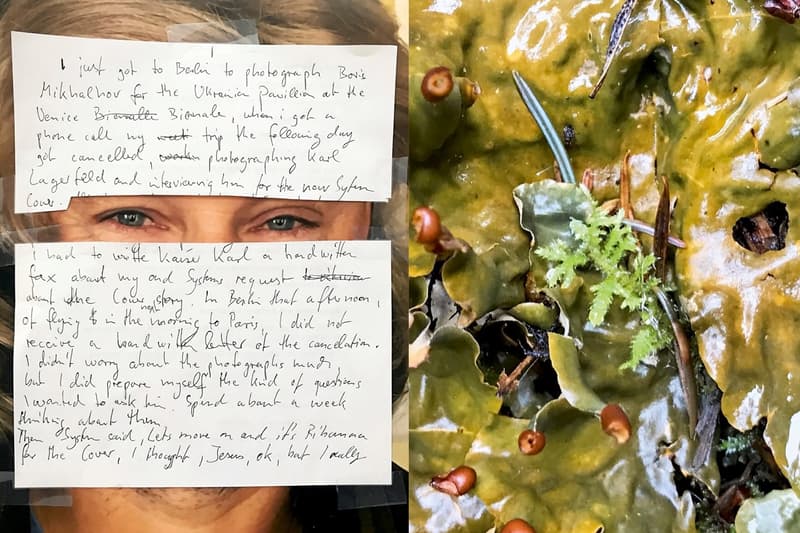 I just got to Berlin to photograph Boris
Mikhalhov for the Ukranian Pavillion at the
Venice Biennalle Biennale, when i got a
phone call my trip the following day
got cancelled, photographing Karl
Lagerfeld and interviewing him for the new System
Cover.
i had to write Kaiser Karl a handwritten
fax about my and Systems request
about the Cover story. In Berlin that afternoon,
of flying in the morning to Paris, I did not
receive a hand letter of the cancelation.
I didn't worry about the photographs much
but I did prepare myself the kind of questions
I wanted to ask him. Spend about a week
thinking about them.
Then System said, Lets move on and it's Rihanna
for the Cover, I thought, Jesus, ok, but I really